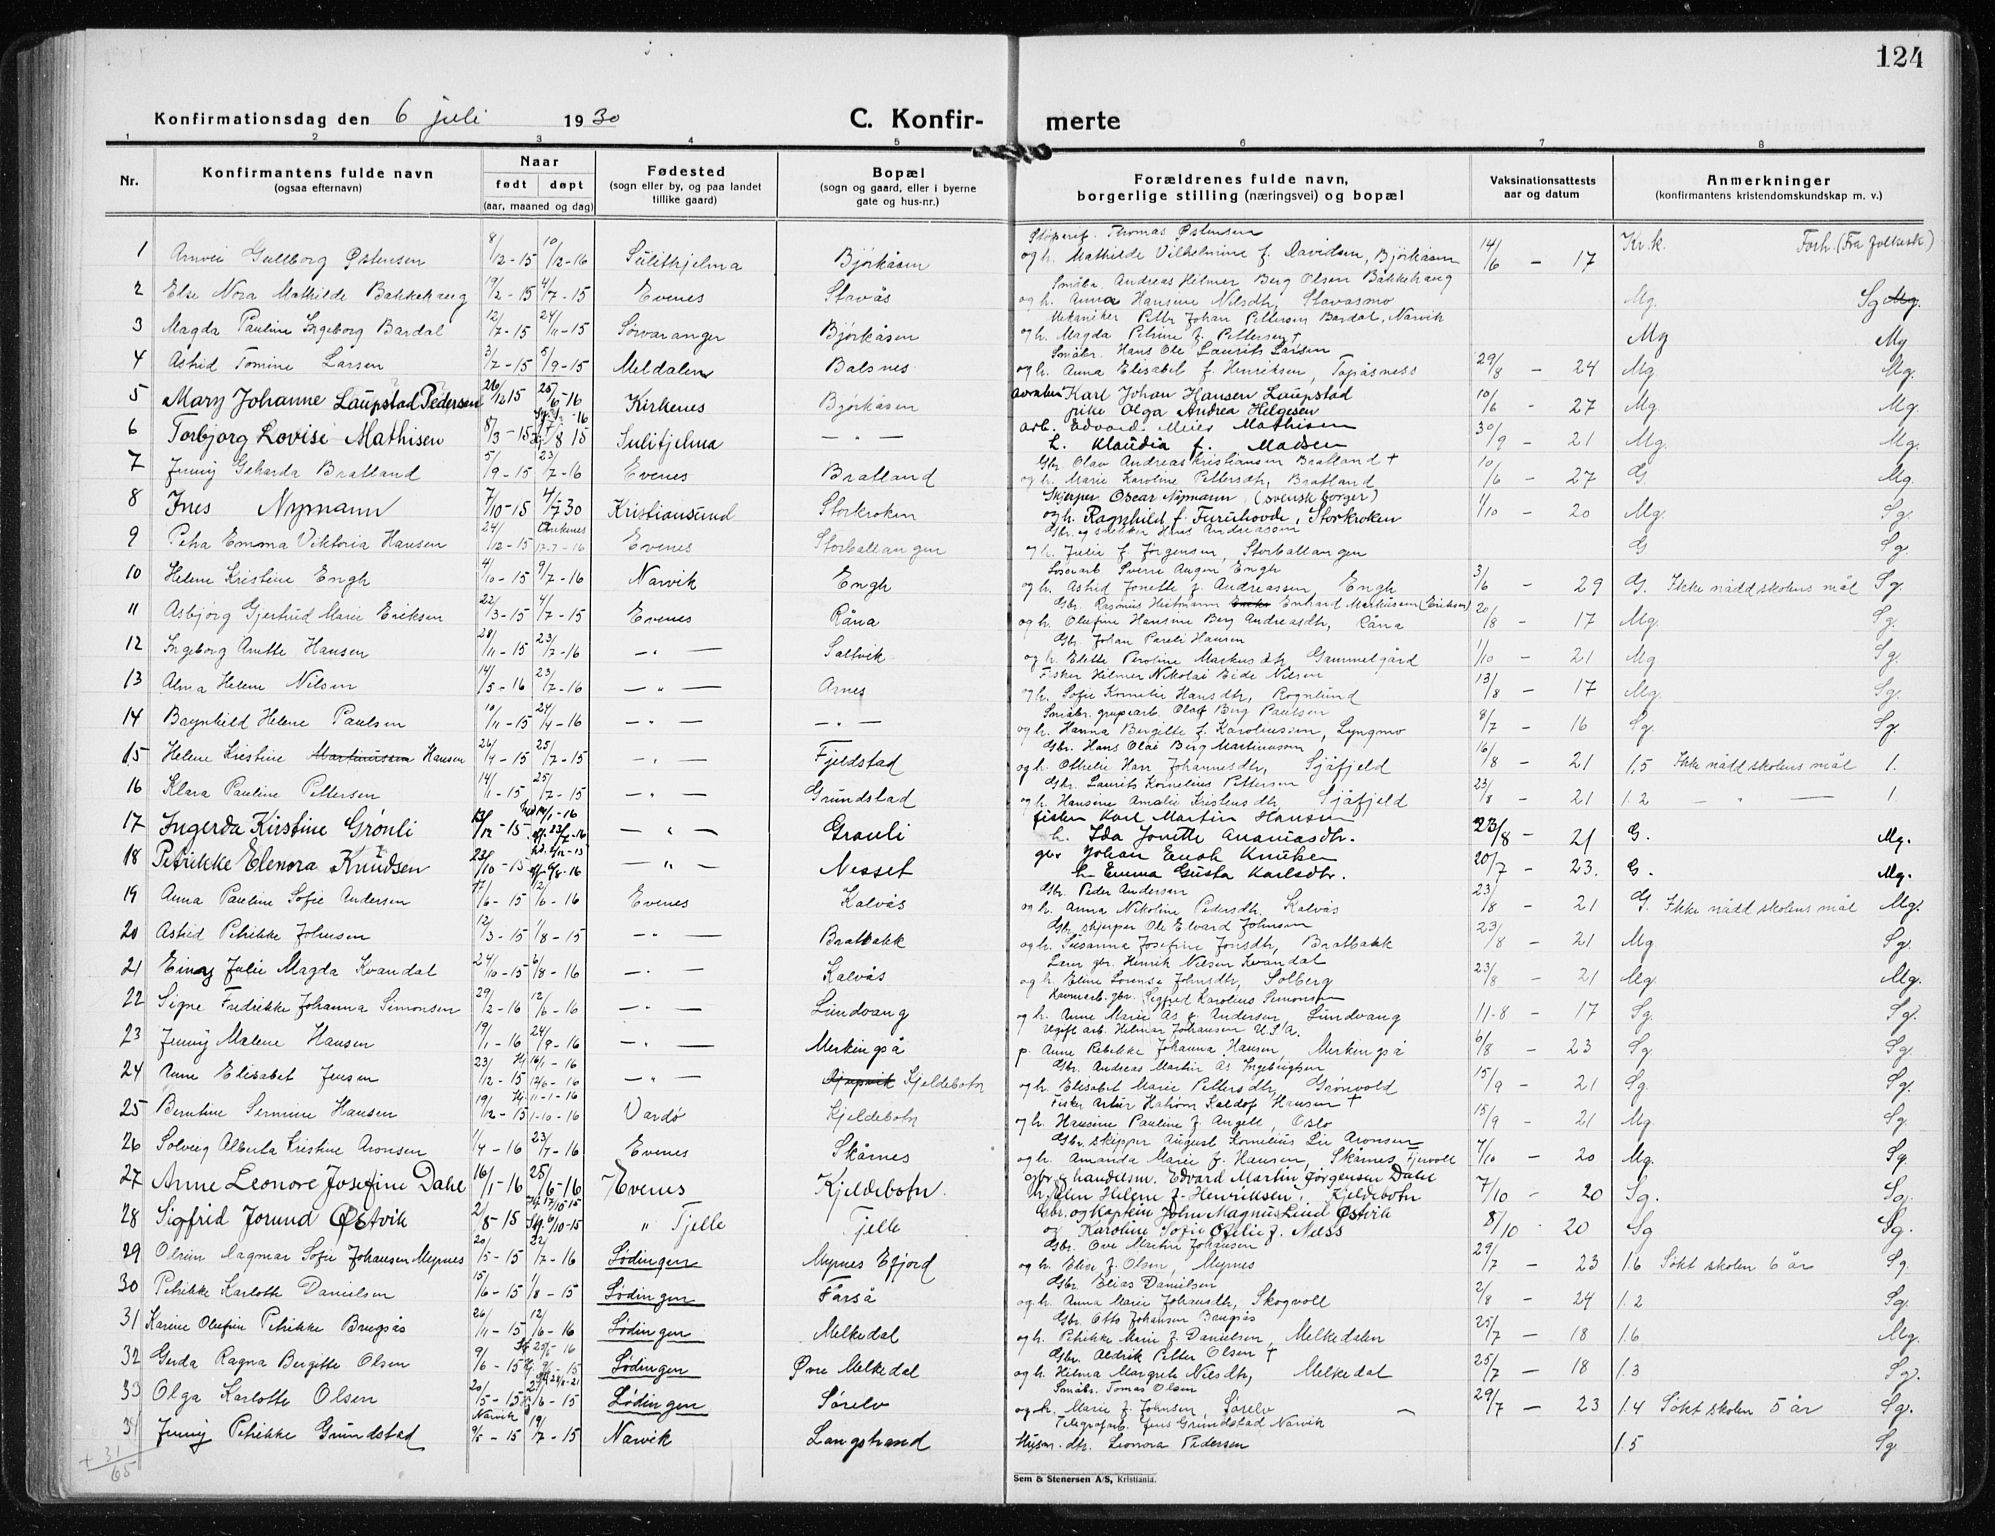 124
Konfirmationsdag den 6 juli 1930
C. Konfir- merte
1 2 3 4 5 6 7 8
Nr.
Konfirmantens fulde navn (ogsaa efternavn)
Naar født døpt (aar, maaned og dag)
Fødested (sogn eller by, og paa landet tillike gaard)
Bopæl (sogn og gaard, eller i byerne gate og hus-nr.)
Forældrenes fulde navn, borgerlige stilling (næringsvei) og bopæl
Vaksinationsattests aar og datum
Anmerkninger (konfirmantens kristendomskundskap m. v.)
Thomas Østensen
1 Gullborg Østensen 8/12-15 10/12-16 Sulitkjelma Bjørkåsen og h. Mathilde Vilhelmine f. Davidsen, Bjørkåsen 14/6 - 17 Kr.k. Forh. (Fra folkesk)
Småbr. Andreas Helmer Berg Olsen Bakkehaug
2 Else Nora Mathilde Bakkehaug 19/2-15 4/7-15 Evenes Stavås og h. Anna Hansine Nilsdtr, Stavasmo Mg. Sg Mg.
Mekaniker Petter Johan Pettersen Bardal, Narvik
3 Magda Pauline Ingeborg Bardal 12/7-15 24/11-15 Sørvaranger Bjørkåsen og h. Magda Petrine f. Pettersen + Mg Mg
Småbr. Hans Ole Laurits Larsen
4 Astrid Tomine Larsen 3/7-15 5/9-15 Meldalen Balsnes og h. Anna Elisabet f. Henriksen, Topåsness 29/8 - 24 Mg. Mg.
Karl Johan Hansen Laupstad
5 Mary Johanne Laupstad Pedersen 26/12 15 25/6-16 Kirkenes Bjørkåsen pike Olga Andrea Helgesen 10/6 - 27 Mg. Mg.
arb. Edvard Meier Mathisen
6 Torbjørg Lovise Mathisen 8/3-15 /8 15 Sulitjelma - " - h. Klaudia f. Madsen 30/9 - 21 Mg. Mg.
Gbr Olav Andreas Kristiansen Bratland +
7 Jenny Geharda Bratland 5/9-15 23/7-16 Evenes Bratland og h. Marie Karoline Pettersdtr, Bratland 10/6 - 27 G Mg.
Skjerper Oscar Nymann, (svensk borger)
8 Ines Nymann 7/10-15 4/7 30 Kristiansund Storkroken og h. Ragnhild f. Furuhovde, Storkroken 1/10 - 20 Mg. Sg.
Gbr. og snekker Hans Andreassen
9 Petra Emma Viktoria Hansen 24/12-15 Ankenes 17-7-16 Evenes Storballangen og h. Julie f. Jørgensen, Storballangen G Sg.
Sverre August Engh
10 Helene Kristine Engh 4/10-15 9/7-16 Narvik Engh og h. Astrid Jonette f. Andreassen, Engh 3/6 - 29 G. Ikke nådd skolens mål Sg.
Gbr. Rasmus Heitmann Enhard Markussen (Eriksen)
11 Asbjørg Gjertrud Marie Eriksen 22/3-15 4/7-15 Evenes Råna og h. Olufine Hansine Berg Andreasdtr, Råna 20/8 - 17 Mg. Sg.
Gbr. Johan Pareli Hansen
12 Ingeborg Anette Hansen 28/11-15 23/7-16 - " - Saltvik og h. Elette Peroline Markusdtr, Gammelgård 1/10 - 21 Mg Sg.
Fisker Hilmer Nikolai Eide Nilsen
13 Alma Helene Nilsen 14/5-16 23/7-16 - " - Arnes og h. Sofie Kornelie Hansdtr, Rognlund 13/8 - 17 Mg. Sg.
Småbr. grubearb. Olaf Berg Paulsen
14 Ragnhild Helene Paulsen 10/11-15 24/4-16 - " - - " - og h. Hanna Bergitte f. Karoliussen, Lyngmo 8/7 - 16 Sg. Sg.
Gbr. Hans Olai Berg Martinussen
15 Helene Kristine Martinussen Hansen 26/4-15 25/7-15 - " - Fjeldstad og h. Othelie Johannesdtr, Sjåfjeld 16/8 - 21 1,5 Ikke nådd skolens mål 1.
Gbr. Laurits Kornelius Pettersen
16 Klara Pauline Pettersen 14/1-15 25/7-15 - " - Grundstad og h. Hansine Amalie Kristensdtr, Sjåfjeld 23/8 - 21 1.2 - " - 1.
fisker Karl Martin Hansen
17 Ingerda Kirstine Grønli 13/12-15 14/1-16 23/7-16 - " - Grønli h. Ida Jonette Ananiasdtr. 23/8 - 21 G. Mg.
gbr Johan Enok Knutsen
18 Petrikke Elenora Knudsen 23/10-15 6/8-16 - " - Nesset h. Emma Gusta Karlsdtr. 20/7 - 23. G. Mg.
Gbr. Peder Andersen
19 Anna Pauline Sofie Andersen 17/6-15 12/6-16 Evenes Kalvås og h. Anna Nikoline Pedersdtr, Kalvås 23/8 - 21 G. Ikke nådd skolens mål Mg.
Gbr. skjerper Ole Edvard Johnsen
20 Astrid Petrikke Johnsen 12/3-15 1/8-15 - " - Bratbakk og h. Susanna Josefine Jonsdtr, Bratbakk 23/8 - 21 Mg Sg.
Lærer gbr. Henrik Nilsen Kvandal
21 Einy Julie Magda Kvandal 24/10-15 6/8-16 - " - Kalvås og h. Eline Lorense Johnsdtr, Solberg 23/8 - 21 Mg. Mg.
gbr. Sigfred Karolius Simonsen
22 Signe Fredrikke Johanna Simonsen 29/2-16 12/6-16 - " - Lundvang og h. Anne Marie Ås f. Andersen, Lundvang 11-8 - 17 Sg. Sg.
Ugift arb. Helmar Johansen U.S.A.
23 Jenny Malene Hansen 19/1-16 24/9-16 - " - Merkingså p. Anne Rebekke Johanna Hansen, Merkingså 6/8 - 23 Sg. Sg.
Gbr. Andreas Martin Ås Ingebrigtsen
24 Anne Elisabet Jensen 23/12-15 16/1-16 12/6-16 - " - Kjeldebotn og h. Elisabet Marie Pettersdtr, Grønvold 15/9 - 21 Sg. Sg.
Fisker Artur Kaldof Hansen +
25 Berntine Sermine Hansen 19/12-15 11-1-16 1-10-16 Vardø Kjeldebotn og h. Hansine Pauline f. Angell, Oslo 15/9 - 21 Mg. Sg.
Gbr. skipper August Kornelius Liv Aronsen
26 Solveig Alberta Kristine Aronsen 1/4-16 23/7-16 Evenes Skårnes og h. Amanda Marie f. Hansen, Skårnes Fjervoll 7/10 - 20 Mg. Sg.
gbr. & handelsm. Edvard Martin Jørgensen Dahl
27 Anne Leonore Josefine Dahl 16/1-16 25/6-16 Evenes Kjeldebotn. h. Helene f. Henriksen, Kjeldebotn 7/10 - 20 Sg. Sg.
Gbr. og kaptein John Magnus Lind Østvik
28 Sigfrid Jorund Østvik 2/8-15 17/10-15 6/10-15 " Tjelle Tjelle og Karoline Sofie Otelie f. Næss 8/10 20 Sg Sg.
Gbr. Ove Martin Johansen
29 Dagmar Sofie Johansen Mypnes 20/5-15 22/7-16 Lødingen Mypnes Efjord og h. Elise f. Olsen, Mypnes 29/7 - 23 1.6 Søkt skolen 6 år Sg.
Gbr Elias Danielsen
30 Petrikke Karloth Danielsen 15/6-15 1/8-15 Lødingen Forså og h. Anna Marie Johansdtr, Skogvoll 2/8 - 24 1.2 Sg.
Gbr. Otto Johansen Brugsås
31 Karene Olufine Petrikke Brugsås 26/11-15 12/6-16 Lødingen Melkedal og h. Petrikke Marie f. Danielsen, Melkedalen 25/7 - 18 1.6 Mg.
Gbr. Aldrik Petter Olsen +
32 Gerda Ragna Bergitte Olsen 9/6-15 Lødingen Øvre Melkedal og h. Hilma Margrete Nilsdtr, Melkedal 25/7 - 18 1.3 Sg.
Småbr. Tomas Olsen
33 Olga Karlotte Olsen 20/5-15 /6-15 Lødingen Sørelv og h. Marie f. Johnsen, Sørelv 29/7 - 23 1.4 Søkt skolen 5 år Sg.
Telegrafarb. Jens Grundstad Narvik
34 Jenny Petrikke Grundstad Narvik 9/5-15 19/7-15 Narvik Langstrand Husm. dtr. Leonora Pedersen 1.5 Sg.
+ 31
65
Sem & Stenersen A/S, Kristiania.